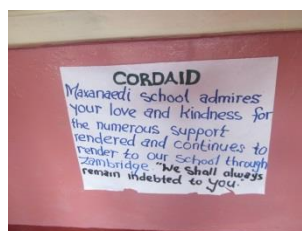 CORDAID
Maranaedi school admires
your love and kindness for
the numerous support
rendered and continues to
render to our school through
Zambridge "We shall always
remain indebted to you."